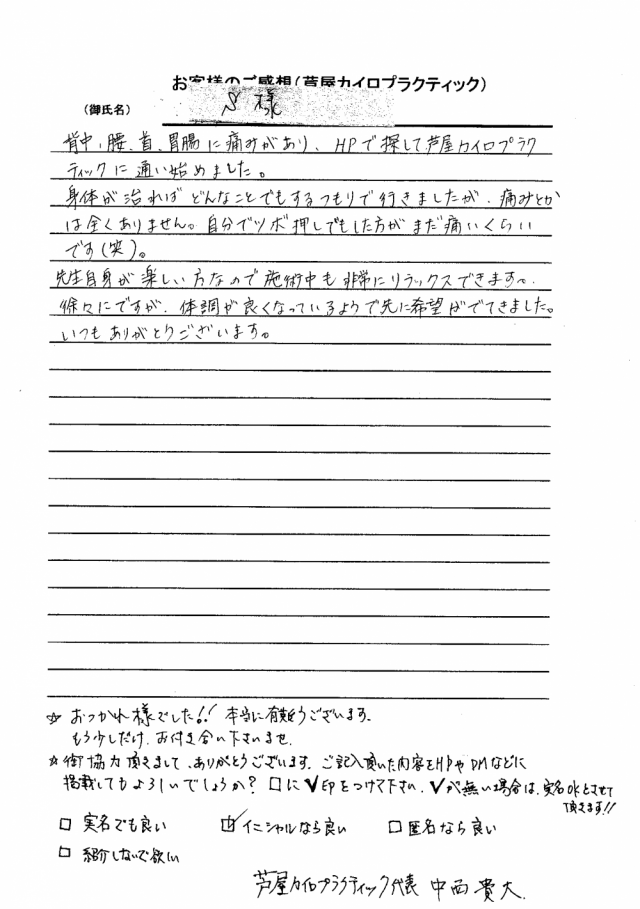 お客様のご感想(芦屋カイロプラクティック)
(御氏名) S 様
背中、腰、首、胃腸に痛みがあり、HPで探して芦屋カイロプラク
ティックに通い始めました。
身体が治ればどんなことでもするつもりで行きましたが、痛みとか
は全くありません。自分でツボ押しでもした方がまだ痛いくらい
です(笑)。
先生自身が楽しい方なので施術中も非常にリラックスできます。
徐々にですが、体調が良くなっているようで先に希望がでてきました。
いつもありがとうございます。
☆ おつかれ様でした!! 本当に有難うございます。
もう少しだけ、お付き合い下さいませ。
☆ 御協力頂きまして、ありがとうございます。ご記入頂いた内容をHPやDMなどに
掲載してもよろしいでしょうか? □に✓印をつけて下さい。✓が無い場合は、実名OKとさせて
頂きます!!
□ 実名でも良い ☑ イニシャルなら良い □ 匿名なら良い
□ 紹介しないで欲しい
芦屋カイロプラクティック代表 中西 貴大.